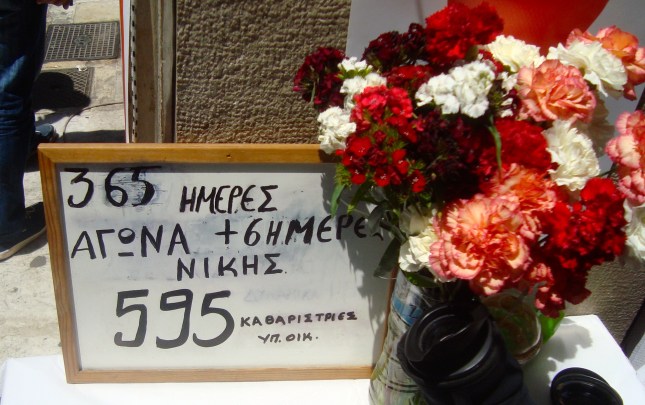 365 ΗΜΕΡΕΣ
ΑΓΩΝΑ + 6 ΗΜΕΡΕΣ
ΝΙΚΗΣ.
595 ΚΑΘΑΡΙΣΤΡΙΕΣ
ΥΠ. ΟΙΚ.